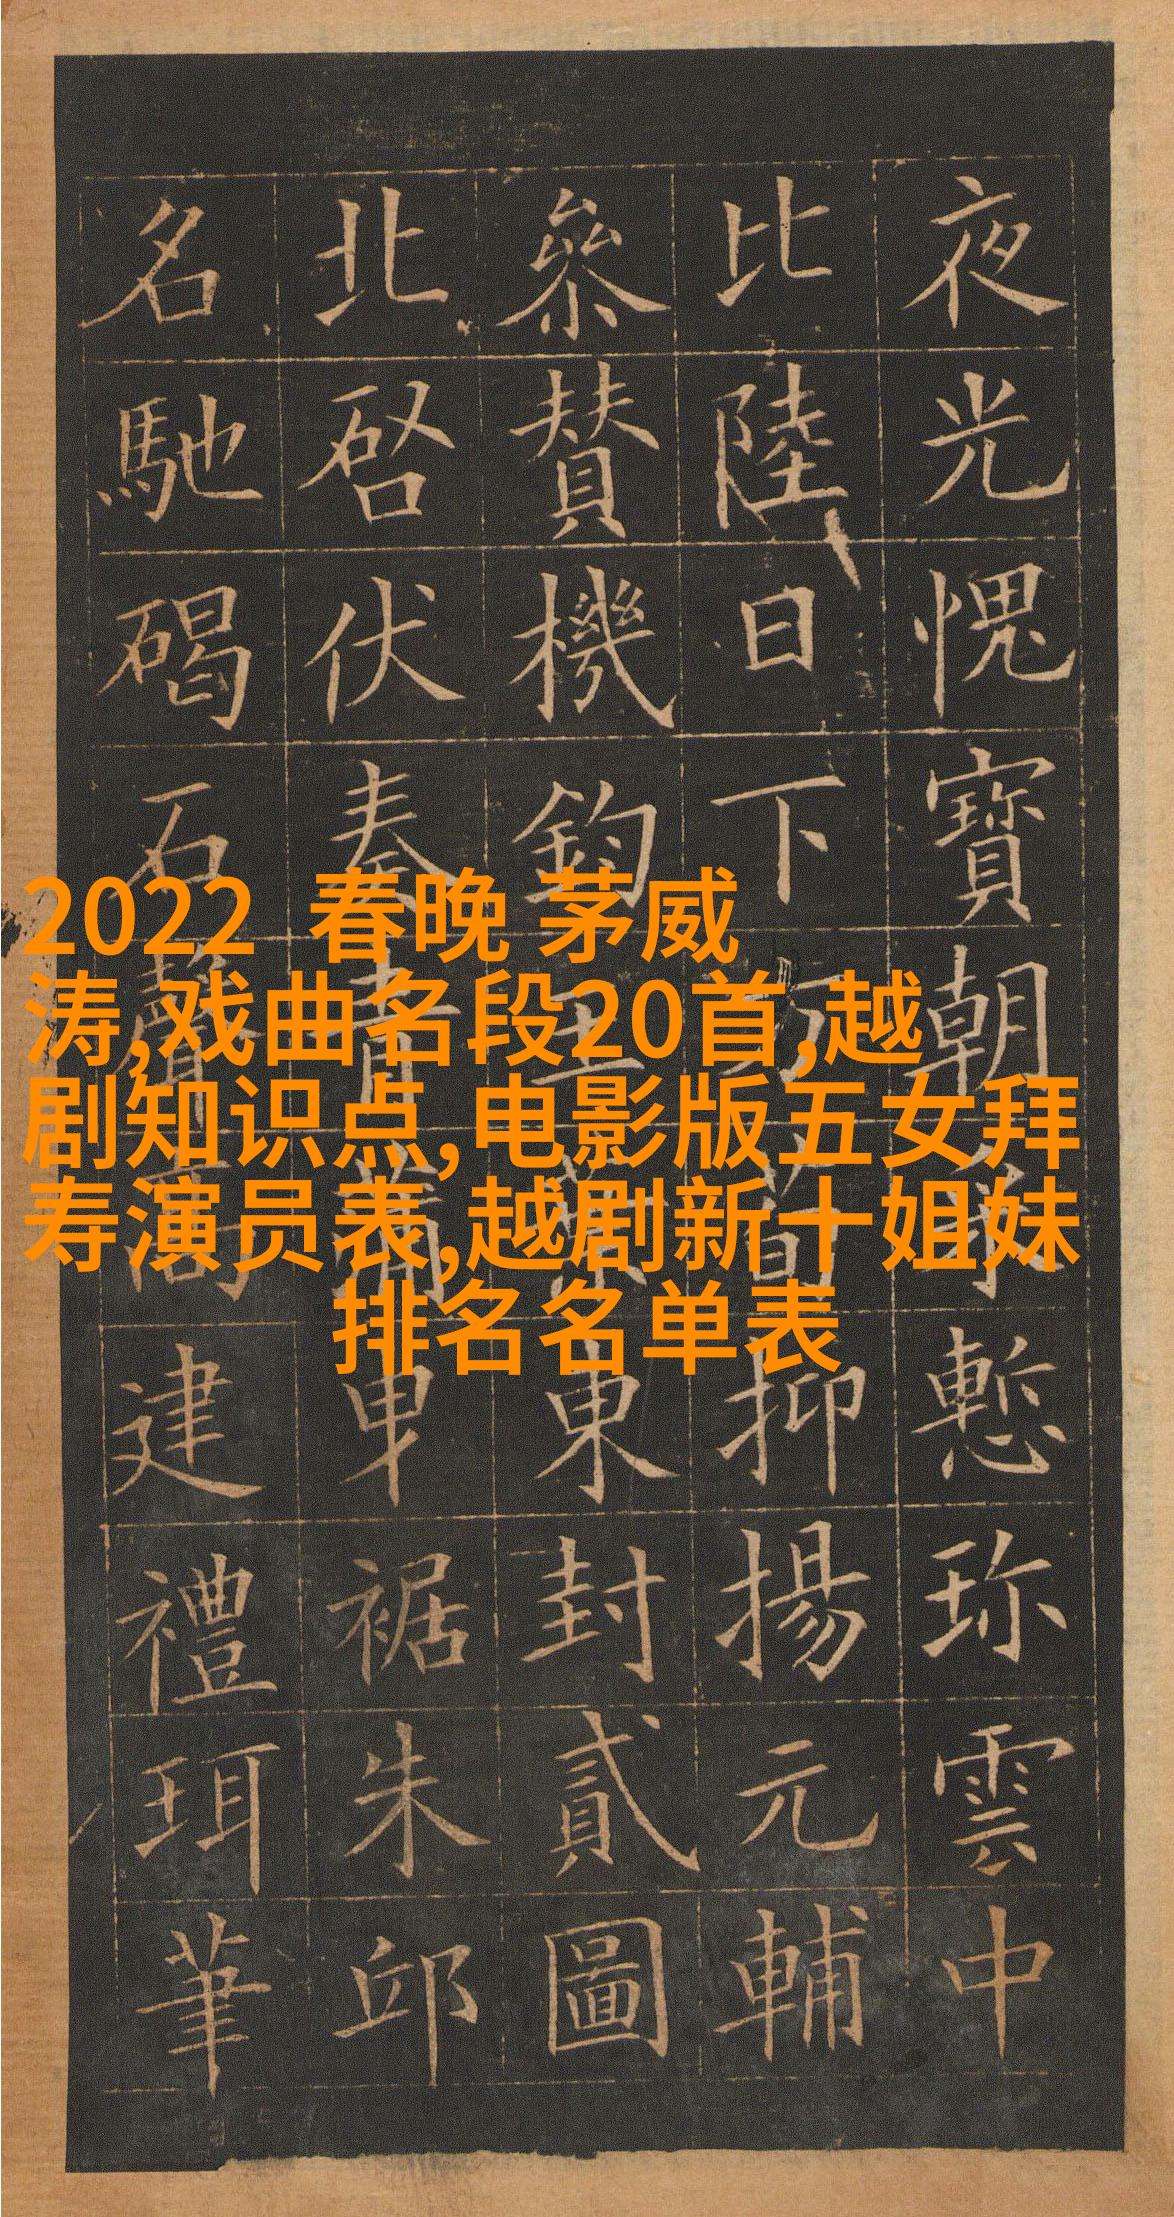 2022 春晚 茅威
涛,戏曲名段20首,越
剧知识点,电影版五女拜
寿演员表,越剧新十姐妹
排名名单表
夜光愧寶朝慙珎雲中
比陸日下抑揚元輔
叅賛機鈞東封貳圖
北啓伏奏青蒲曳裾朱邸
名馳碣石聲高建禮珥筆